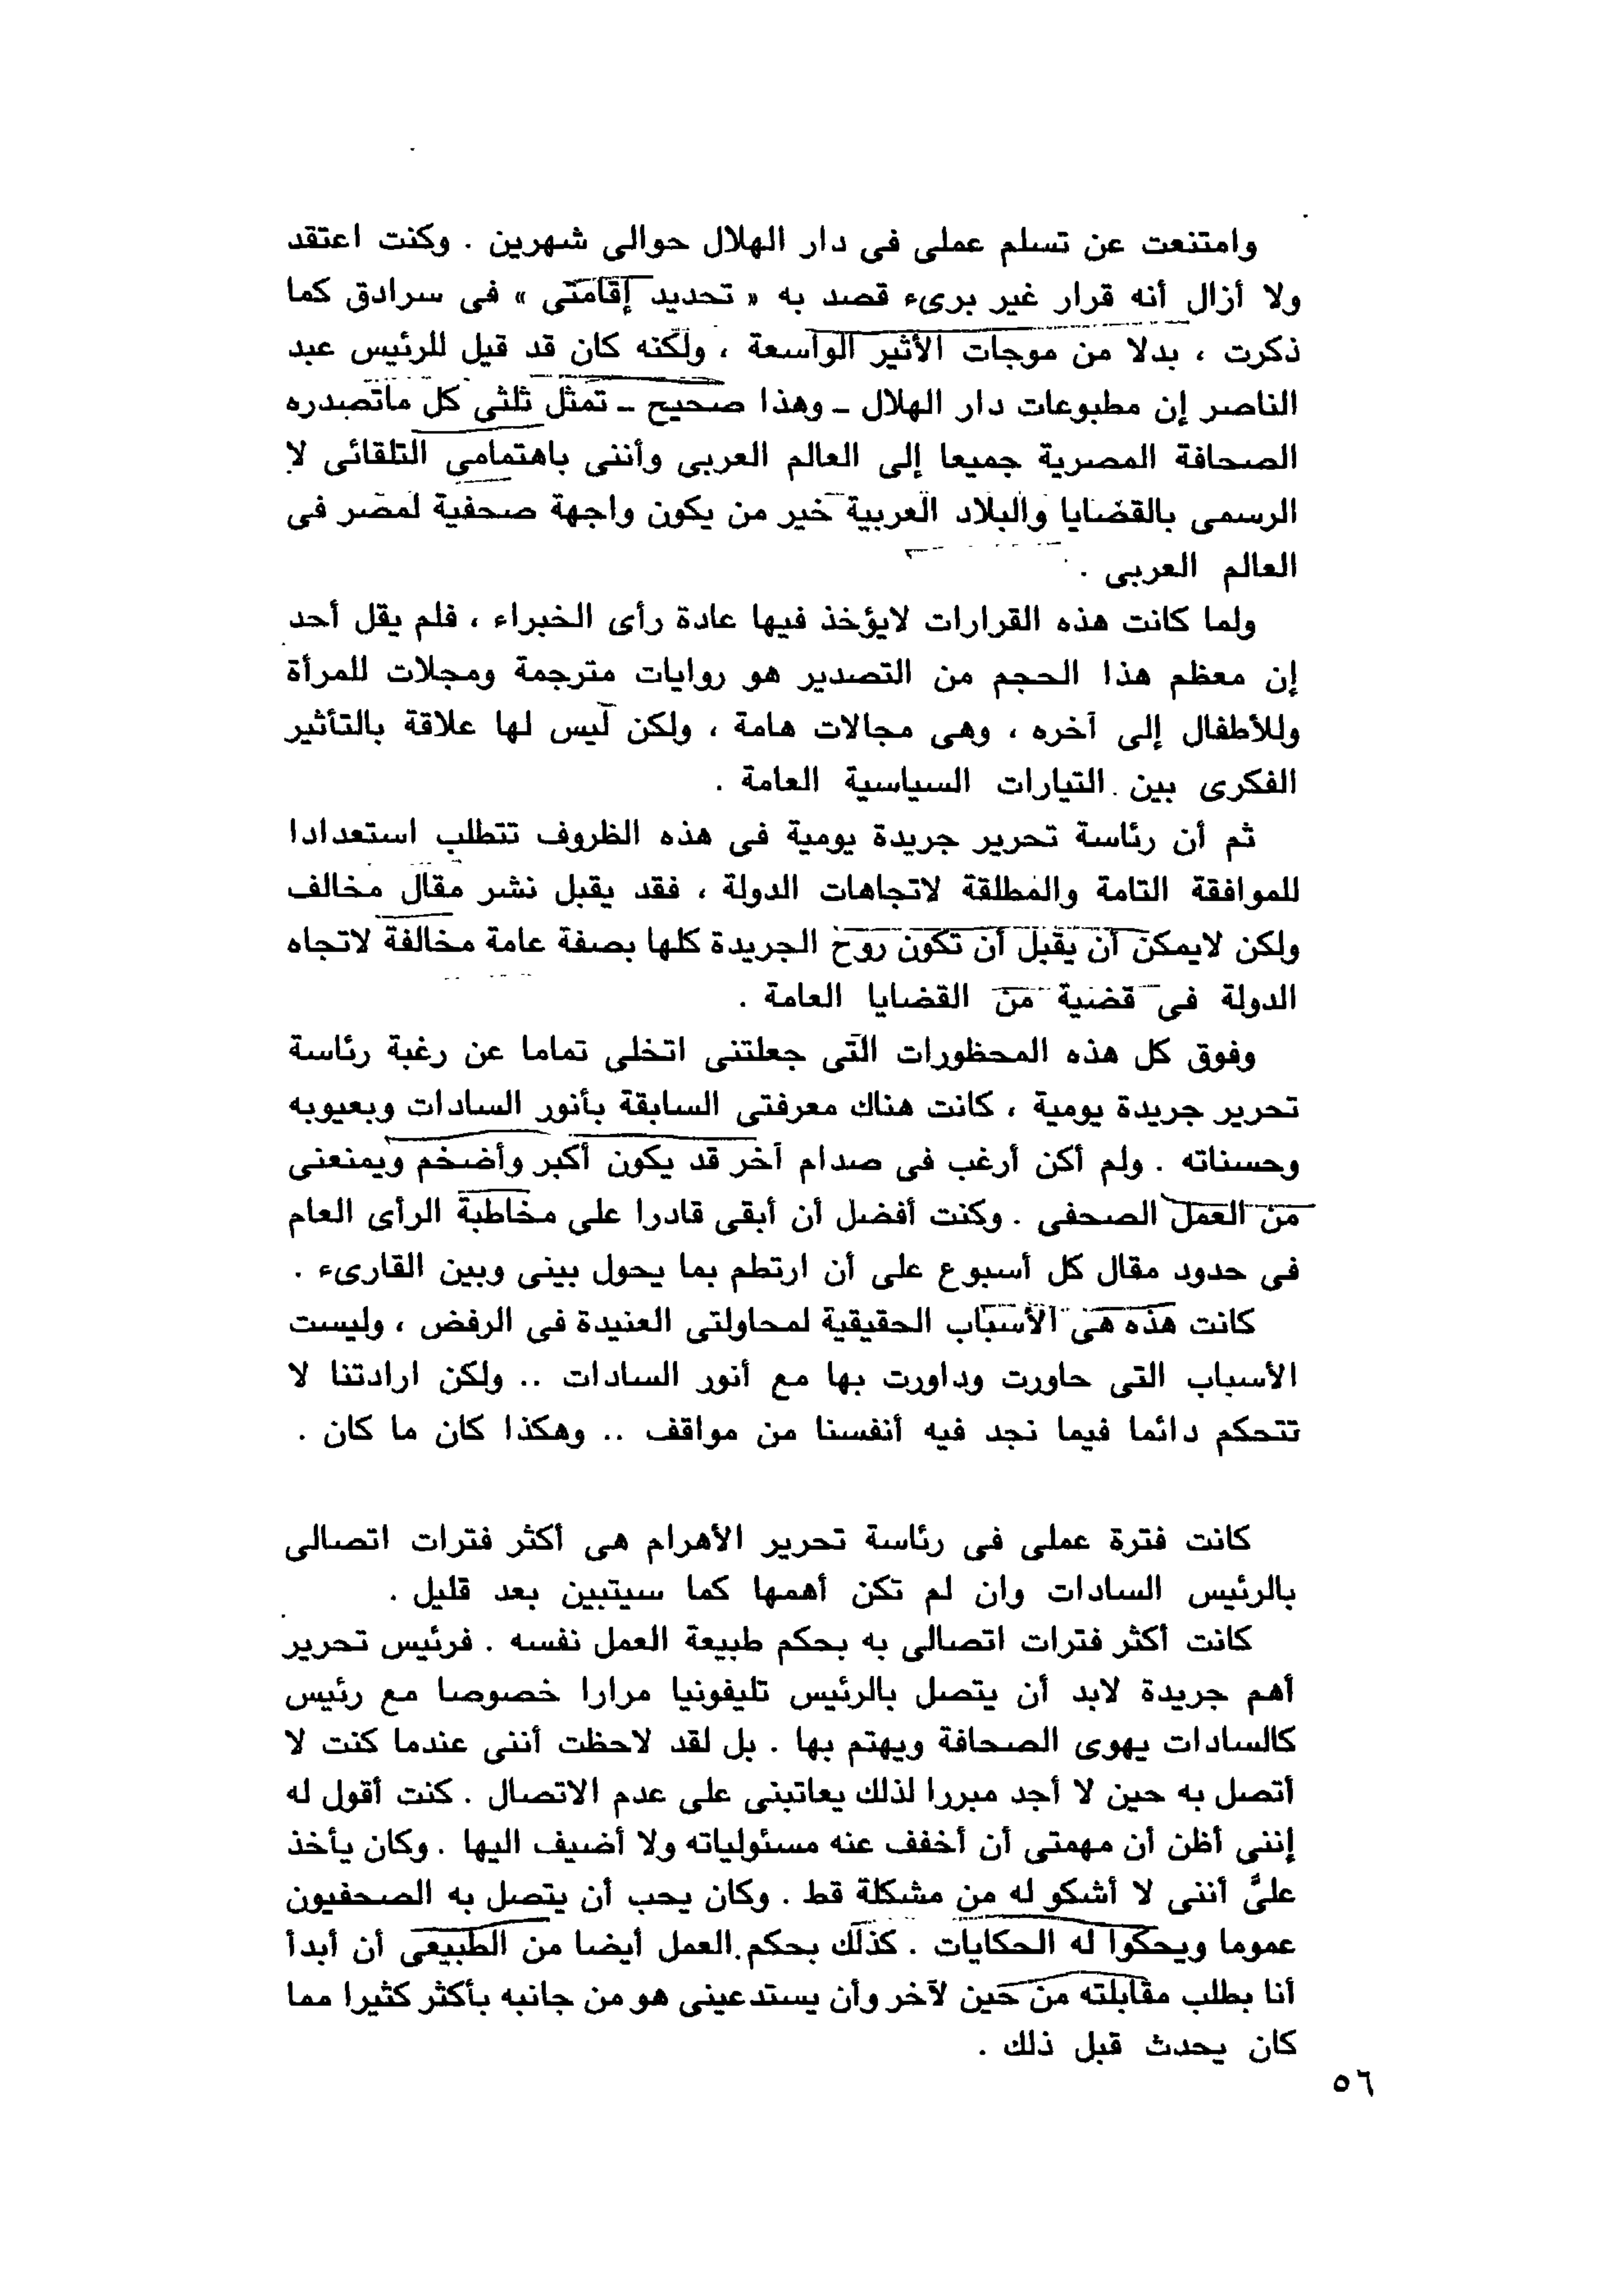 وامتنعت عن تسلم عملى فى دار الهلال حوالى شهرين . وكنت اعتقد
ولا أزال أنه قرار غير برىء قصد به « تحديد إقامتى » فى سرادق كما
ذكرت ، بدلا من موجات الأثير الواسعة ، ولكنه كان قد قيل للرئيس عبد
الناصر إن مطبوعات دار الهلال ـ وهذا صحيح ـ تمثل ثلثى كل ماتصدره
الصحافة المصرية جميعا إلى العالم العربى وأننى باهتمامى التلقائى لا
الرسمى بالقضايا والبلاد العربية خير من يكون واجهة صحفية لمصر فى
العالم العربى .
ولما كانت هذه القرارات لايؤخذ فيها عادة رأى الخبراء ، فلم يقل أحد
إن معظم هذا الحجم من التصدير هو روايات مترجمة ومجلات للمرأة
وللأطفال إلى آخره ، وهى مجالات هامة ، ولكن ليس لها علاقة بالتأثير
الفكرى بين التيارات السياسية العامة .
ثم أن رئاسة تحرير جريدة يومية فى هذه الظروف تتطلب استعدادا
للموافقة التامة والمطلقة لاتجاهات الدولة ، فقد يقبل نشر مقال مخالف
ولكن لايمكن أن يقبل أن تكون روح الجريدة كلها بصفة عامة مخالفة لاتجاه
الدولة فى قضية من القضايا العامة .
وفوق كل هذه المحظورات التى جعلتنى اتخلى تماما عن رغبة رئاسة
تحرير جريدة يومية ، كانت هناك معرفتى السابقة بأنور السادات وبعيوبه
وحسناته . ولم أكن أرغب فى صدام آخر قد يكون أكبر وأضخم ويمنعنى
من العمل الصحفى . وكنت أفضل أن أبقى قادرا على مخاطبة الرأى العام
فى حدود مقال كل أسبوع على أن ارتطم بما يحول بينى وبين القارىء .
كانت هذه هى الأسباب الحقيقية لمحاولتى العنيدة فى الرفض ، وليست
الأسباب التى حاورت وداورت بها مع أنور السادات .. ولكن ارادتنا لا
تتحكم دائما فيما نجد فيه أنفسنا من مواقف .. وهكذا كان ما كان .
كانت فترة عملى فى رئاسة تحرير الأهرام هى أكثر فترات اتصالى
بالرئيس السادات وان لم تكن أهمها كما سيتبين بعد قليل .
كانت أكثر فترات اتصالى به بحكم طبيعة العمل نفسه . فرئيس تحرير
أهم جريدة لابد أن يتصل بالرئيس تليفونيا مرارا خصوصا مع رئيس
كالسادات يهوى الصحافة ويهتم بها . بل لقد لاحظت أننى عندما كنت لا
أتصل به حين لا أجد مبررا لذلك يعاتبنى على عدم الاتصال . كنت أقول له
إننى أظن أن مهمتى أن أخفف عنه مسئولياته ولا أضيف اليها . وكان يأخذ
علىَّ أننى لا أشكو له من مشكلة قط . وكان يحب أن يتصل به الصحفيون
عموما ويحكوا له الحكايات . كذلك بحكم العمل أيضا من الطبيعى أن أبدأ
أنا بطلب مقابلته من حين لآخر وأن يستدعينى هو من جانبه بأكثر كثيرا مما
كان يحدث قبل ذلك .
٥٦